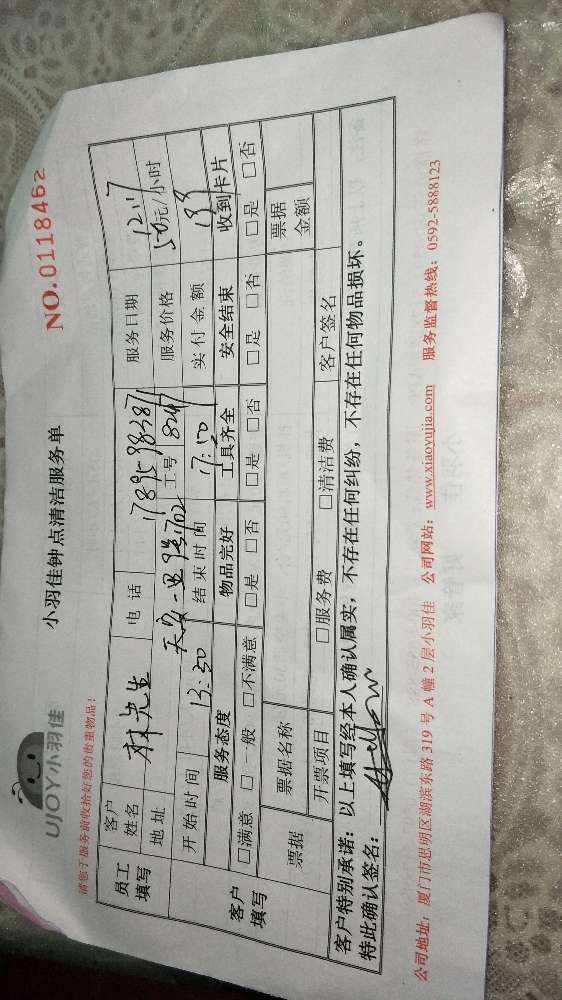 UJOY小羽佳
小羽佳钟点清洁服务单
NO.0118462
请您于服务前收拾好您的贵重物品!
员工填写 客户姓名 林先生 电话 服务日期 12.17
地址 工号 8247 服务价格 50元/小时
开始时间 13:30 结束时间 17:50 实付金额
客户填写 服务态度 物品完好 工具齐全 安全结束 收到卡片
□满意 □一般 □不满意 □是 □否 □是 □否 □是 □否 □是 □否
票据 票据名称 票据金额
开票项目 □服务费 □清洁费 客户签名
客户特别承诺:以上填写经本人确认属实,不存在任何纠纷,不存在任何物品损坏。
特此确认签名:
公司地址:厦门市思明区湖滨东路319号A幢2层小羽佳 公司网站:www.xiaoyujia.com 服务监督热线:0592-5888123